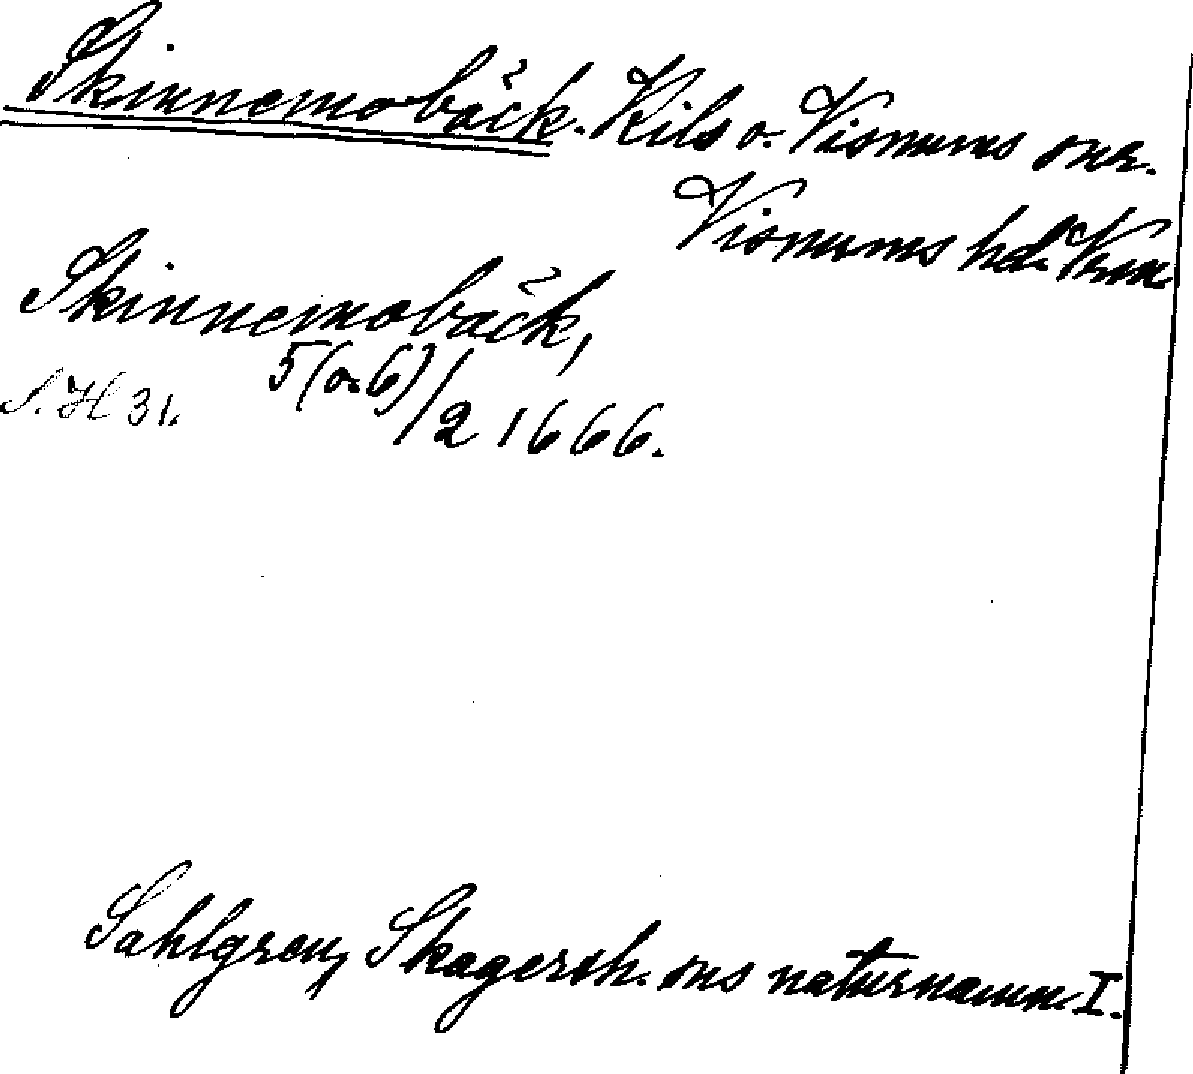 Skinnemobäck. Kils o. Visnums snr.
Visnums hd. Vrm.
Skinnemobäck,
5(o.6)/2 1666.
S. H 31.
Sahlgren, Skagersh. sns naturnamn I.